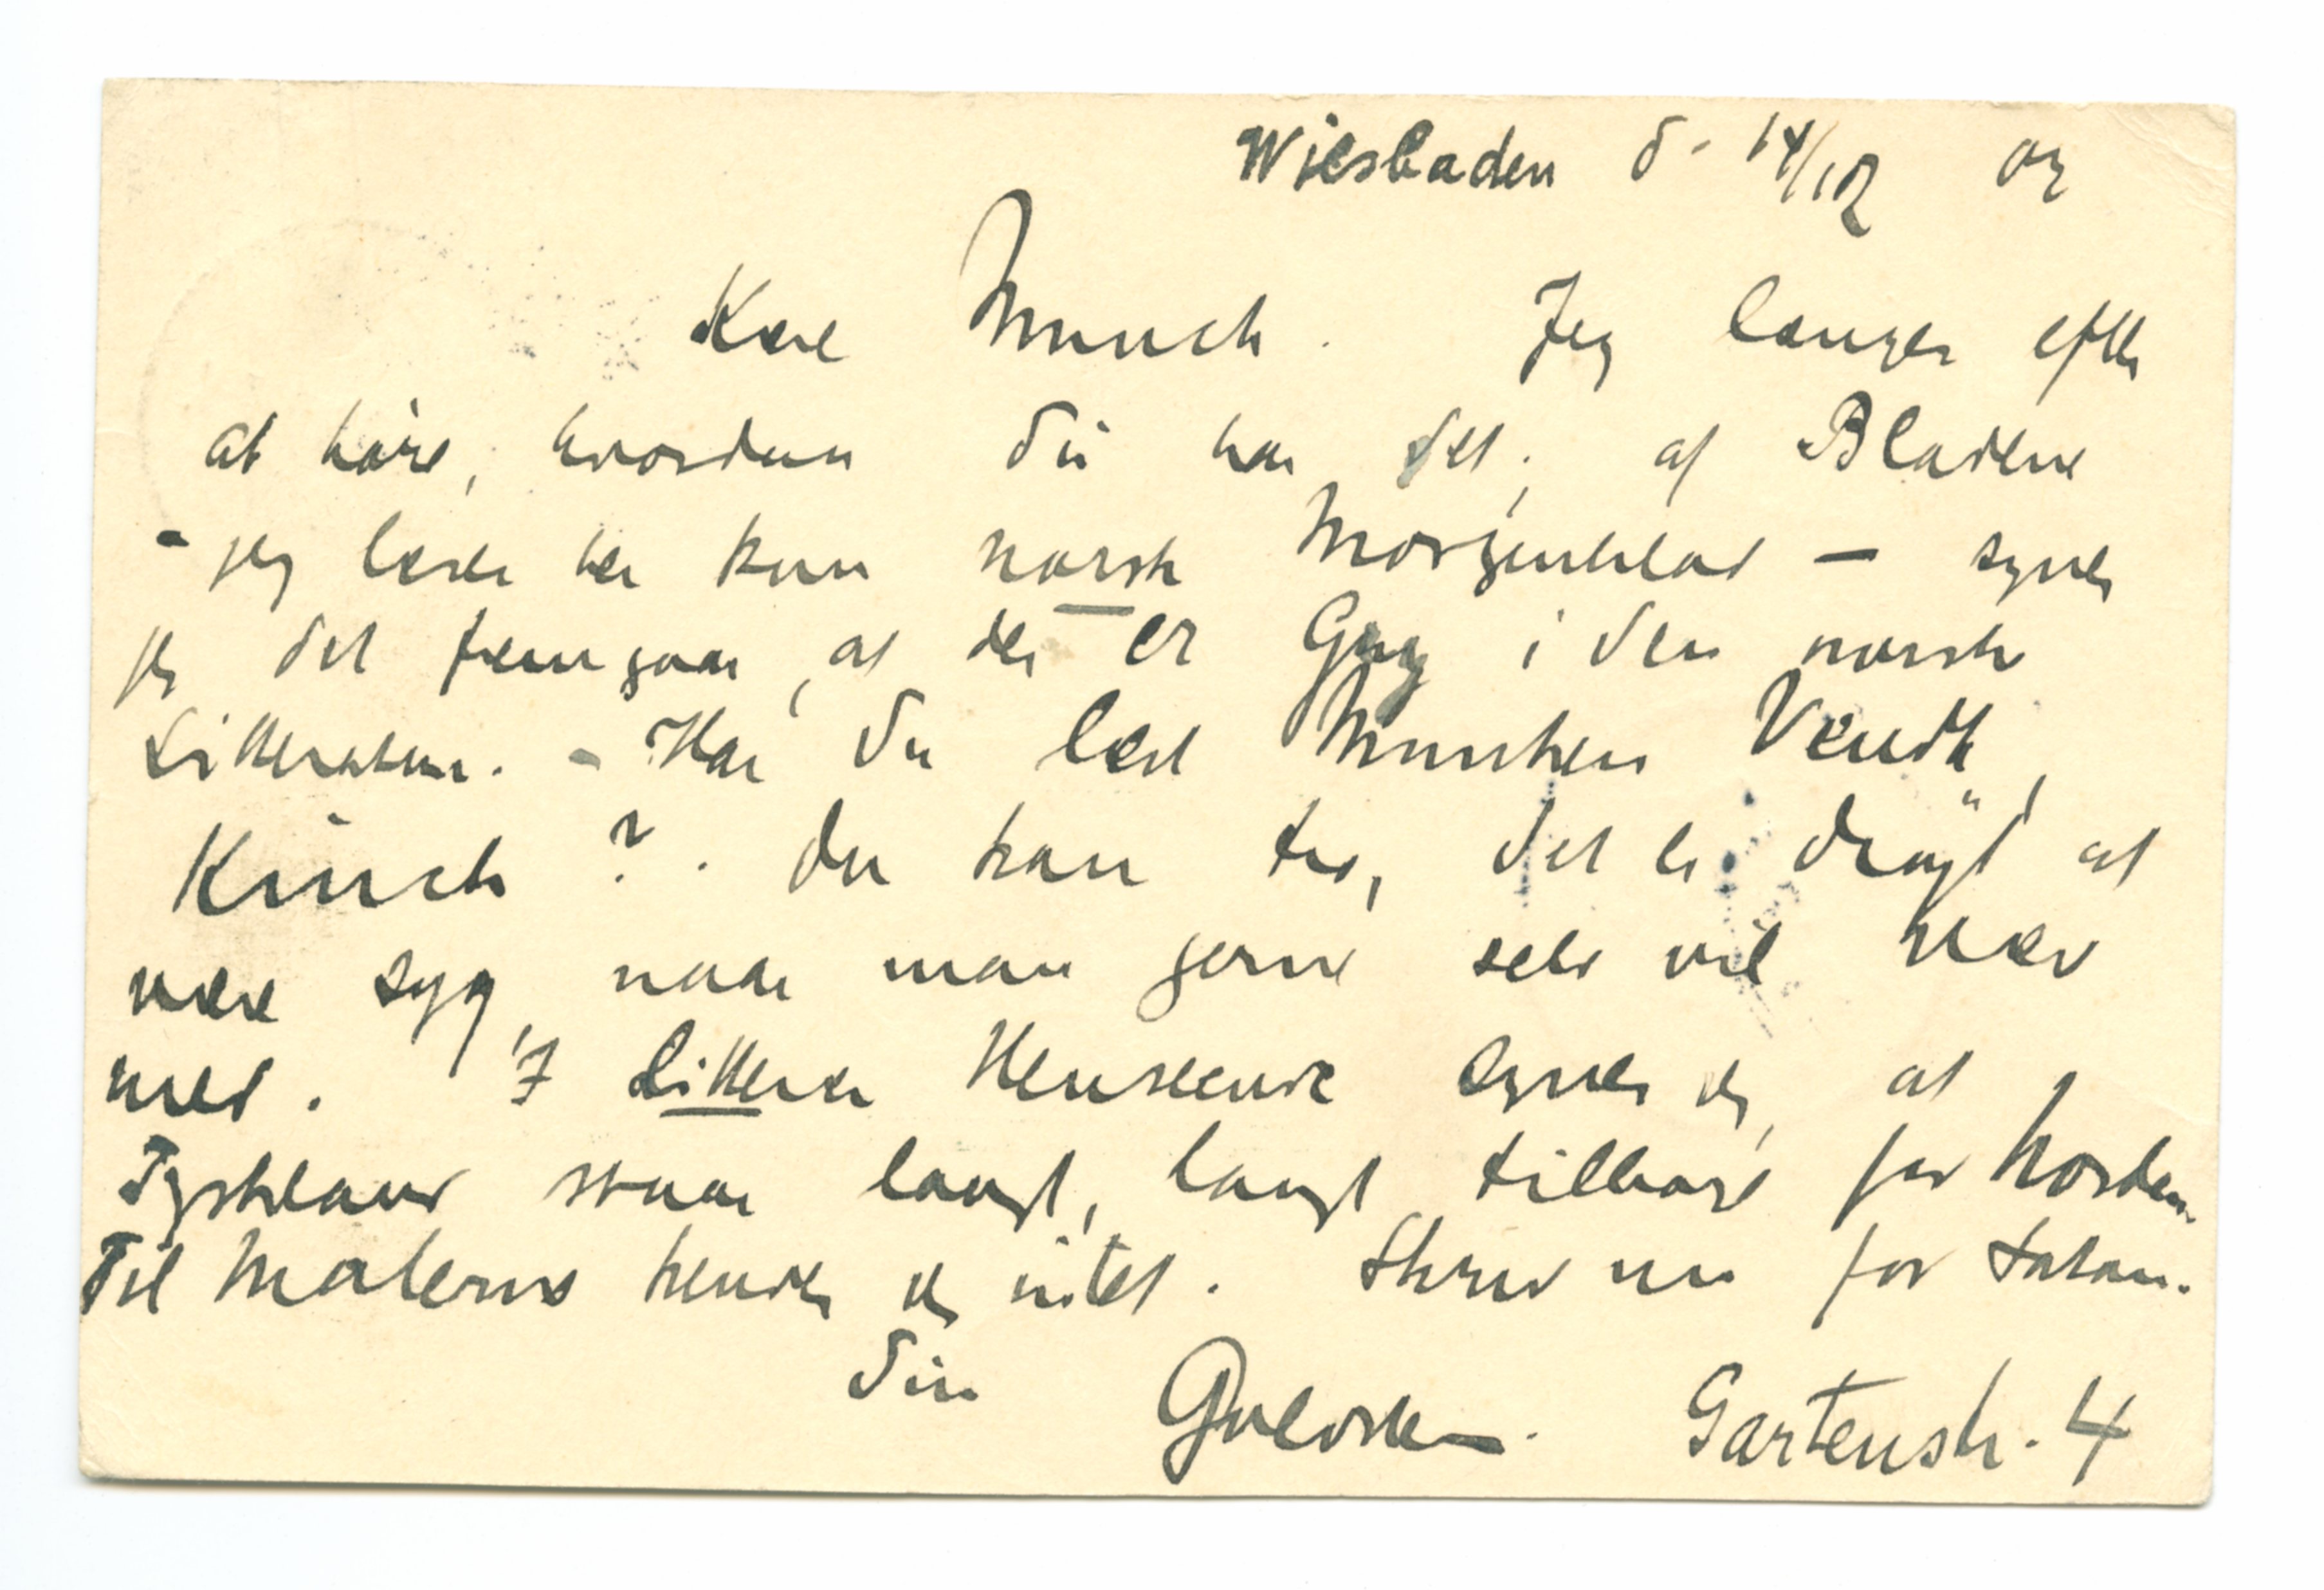 Wiesbaden d. 14/12 02
Kære Munch. Jeg længes efter
at høre, hvordan du har det; af Bladene
- jeg læser her kun norsk Morgenblad – synes
jeg det fremgaar, at der er Gang i den norske
Litteratur. - Har Du læst Munken Vendt,
Kinck?. Du kan tro, det er drøjt at
være syg, naar man gerne selv vil være
med. I Litterær Henseende synes jeg, at
Tyskland staar langt, langt tilbage for Norden.
Til Malerne kender jeg intet. Skriv nu for Satan.
Din Goldstein. Gartenstr. 4